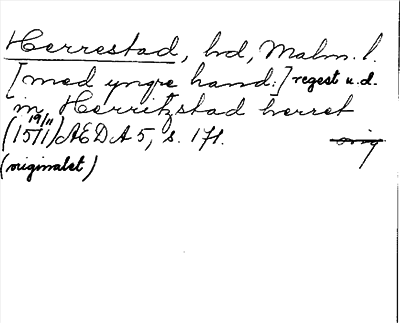 Herrestad, hd, Malm. l.
[med yngre hand:] regest u.d.
in Herritzstad herret
19/11
(1571) AEDA 5, s. 171.
orig
(originalet)